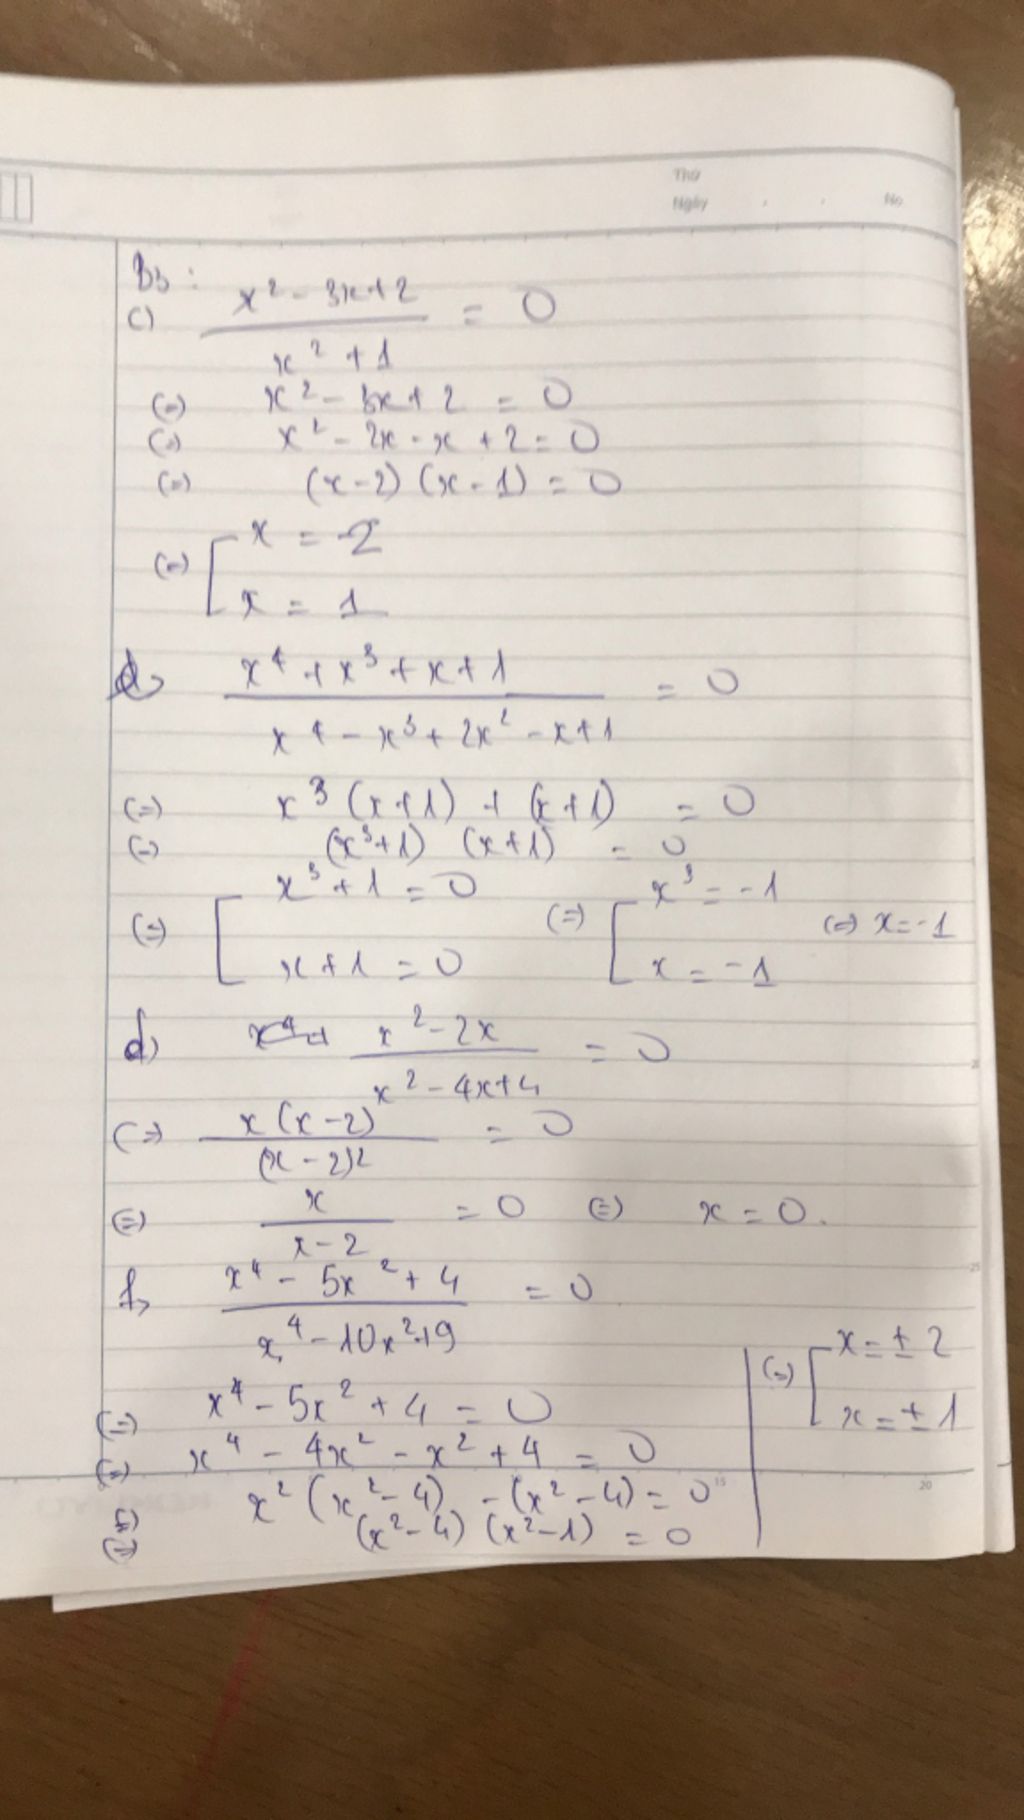 Thứ
Ngày . . No.
B3 :
c) \frac{x² - 3x + 2}{x² + 1} = 0
(=) x² - 3x + 2 = 0
(=) x² - 2x - x + 2 = 0
(=) (x - 2) (x - 1) = 0
(=) [ x = 2
x = 1
e, \frac{x⁴ + x³ + x + 1}{x⁴ - x³ + 2x² - x + 1} = 0
(=) x³ (x + 1) + (x + 1) = 0
(=) (x³ + 1) (x + 1) = 0
(=) [ x³ + 1 = 0 (=) [ x³ = -1 (=) x = -1
x + 1 = 0 x = -1
d) \frac{x² - 2x}{x² - 4x + 4} = 0
(=) \frac{x (x - 2)}{(x - 2)²} = 0
(=) \frac{x}{x - 2} = 0 (=) x = 0.
f, \frac{x⁴ - 5x² + 4}{x⁴ - 10x² + 9} = 0
(=) x⁴ - 5x² + 4 = 0
(=) x⁴ - 4x² - x² + 4 = 0
(=) x² (x² - 4) - (x² - 4) = 0
(=) (x² - 4) (x² - 1) = 0
(=) [ x = ± 2
x = ± 1
15 20
25